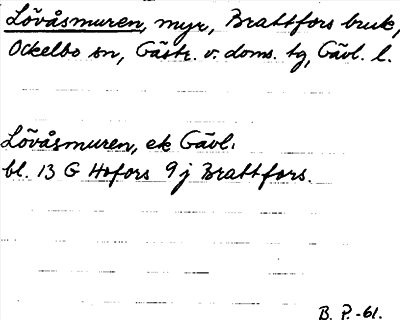 Lövåsmuren, myr, Brattfors bruk,
Ockelbo sn, Gästr. v. doms. tg, Gävl. l.
Lövåsmuren, ek Gävl.
bl. 13 G Hofors 9 j Brattfors.
B. P. -61.